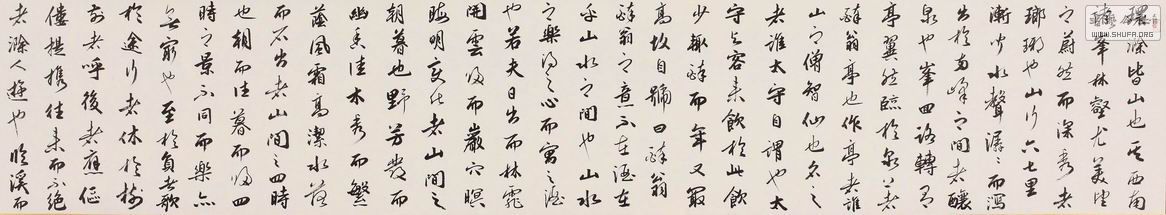 環滁皆山也其西南
諸峯林壑尤美望
之蔚然而深秀者
瑯琊也山行六七里
漸聞水聲潺々而瀉
出於兩峰之間者釀
泉也峯回路轉有
亭翼然臨於泉上者
醉翁亭也作亭者誰
山之僧智仙也名之
者誰太守自謂也太
守与客来飲於此飲
少輒醉而年又最
高故自號曰醉翁
醉翁之意不在酒在
乎山水之間也山水
之樂得之心而寓之酒
也若夫日出而林霏
開雲歸而巖穴暝
晦明變化者山間之
朝暮也野芳發而
幽香佳木秀而繁
蔭風霜高潔水落
而石出者山間之四時
也朝而往暮而歸四
時之景不同而樂亦
無窮也至於負者歌
於途行者休於樹
前者呼後者應傴
僂提攜往来而不絕
者滁人遊也臨溪而
WWW.SHUFA.ORG